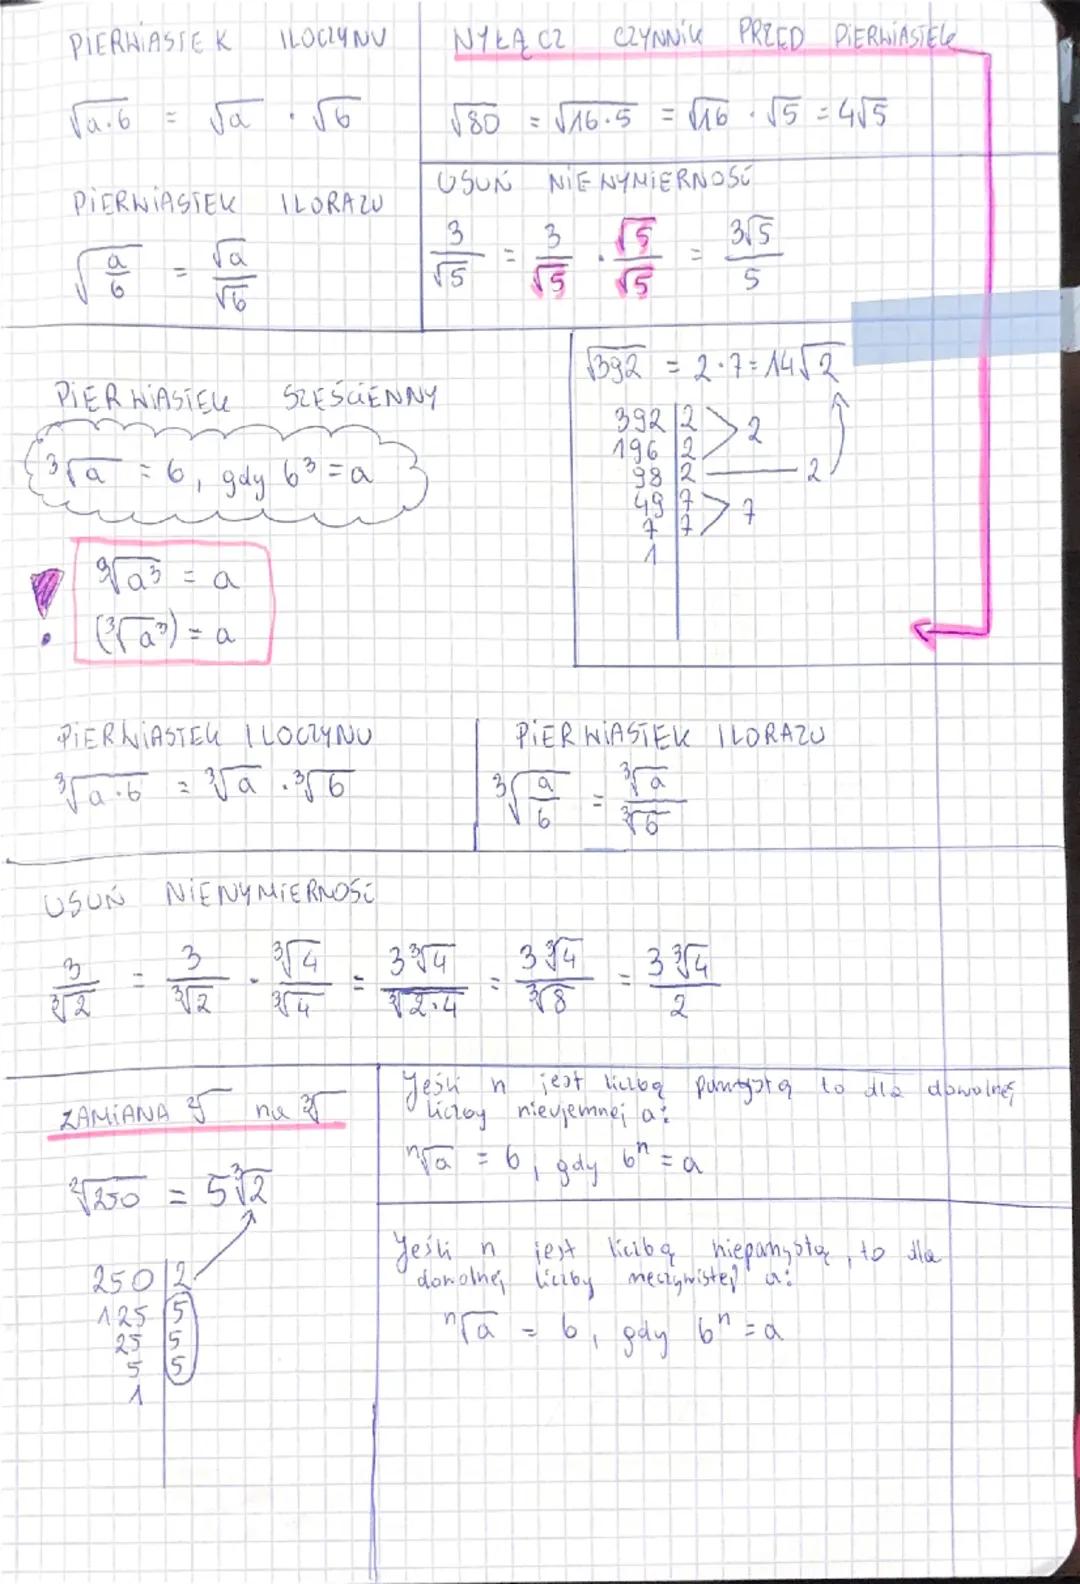 PIERWIASTEK ILOCZYNU
√a·b = √a · √b
PIERWIASTEK ILORAZU
√(a/b) = √a/√b
WYŁĄCZ CZYNNIK PRZED PIERWIASTEK
√80 = √16·5 = √16 · √5 = 4√5
USUŃ NIEWYMIERNOŚĆ
3/√5 = 3/√5 · √5/√5 = 3√5/5
√392 = 2·7=14√2
392 | 2 > 2
196 | 2
98 | 2 — 2
49 | 7 > 7
7 | 7
1
PIERWIASTEK SZEŚCIENNY
³√a = b, gdy b³ = a
! ³√a³ = a
(³√a³) = a
PIERWIASTEK ILOCZYNU
³√a·b = ³√a · ³√b
PIERWIASTEK ILORAZU
³√(a/b) = ³√a/³√b
USUŃ NIEWYMIERNOŚĆ
3/³√2 = 3/³√2 · ³√4/³√4 = 3³√4/³√2·4 = 3³√4/³√8 = 3³√4/2
ZAMIANA ²√ na ³√
²√250 = 5³√2
250 | 2
125 | 5
25 | 5
5 | 5
1
Jeśli n jest liczbą parzystą to dla dowolnej
liczby nieujemnej a:
ⁿ√a = b, gdy bⁿ = a
Jeśli n jest liczbą nieparzystą, to dla
dowolnej liczby rzeczywistej a:
ⁿ√a = b, gdy bⁿ = a